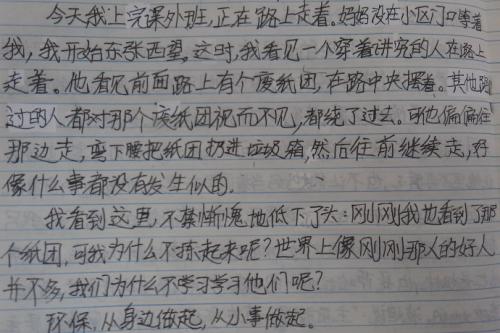 今天我上完课外班,正在路上走着。妈妈没在小区门口等着
我,我开始东张西望,这时,我看见一个穿着讲究的人在路上
走着。他看见前面路上有个废纸团,在路中央摆着。其他路
过的人都对那个废纸团视而不见,都绕了过去。可他偏偏往
那边走,弯下腰把纸团扔进垃圾箱,然后往前继续走,好
像什么事都没有发生似的.
我看到这里,不禁惭愧地低下了头:刚刚我也看到了那
个纸团,可我为什么不拣起来呢?世界上像刚刚那人的好人
并不多,我们为什么不学习学习他们呢?
环保,从身边做起,从小事做起。